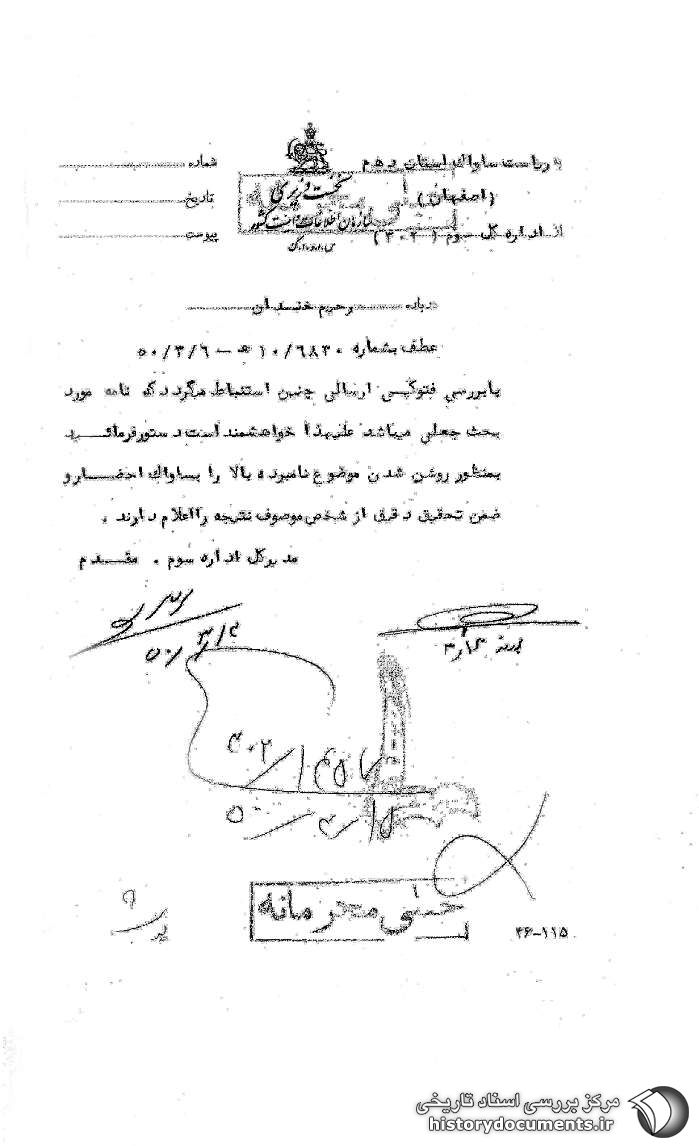 به ریاست ساواک استان دهم
(اصفهان)
از اداره کل سوم (۳۰۲)
نخست وزیری
سازمان اطلاعات و امنیت کشور
س.ا.و.ا.ک
شماره
تاریخ
پیوست
درباره رحیم خندان
عطف بشماره ۱۰/۶۸۳۰ ه‍ – ۵۰/۳/۶
با بررسی فتوکپی ارسالی چنین استنباط میگردد که نامه مورد
بحث جعلی میباشد علیهذا خواهشمند است دستور فرمائید
بمنظور روشن شدن موضوع نامبرده بالا را بساواک احضار و
ضمن تحقیق دقیق از شخص موصوف نتیجه را اعلام دارند .
مدیرکل اداره سوم . مقدم
۳۰۲/
خیلی محرمانه
۴۶-۱۱۵
مرکز بررسی اسناد تاریخی
historydocuments.ir